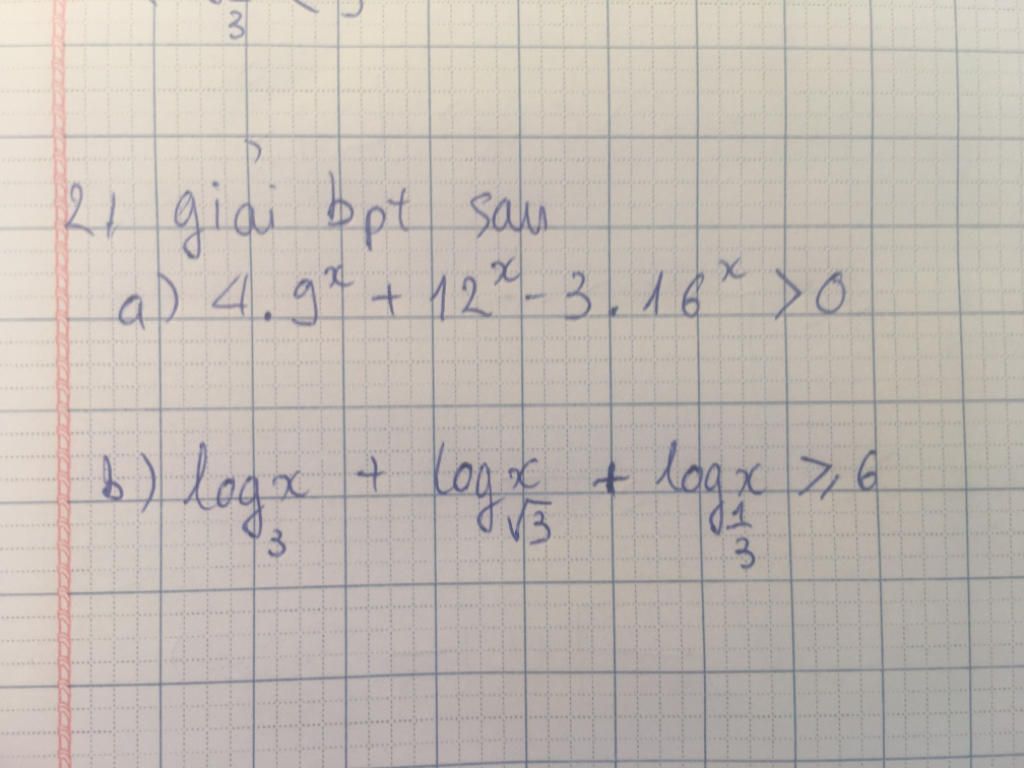 3
2) giải bpt sau
a) 4.9^x + 12^x - 3.16^x > 0
b) log_3 x + log_√3 x + log_1/3 x ≥ 6